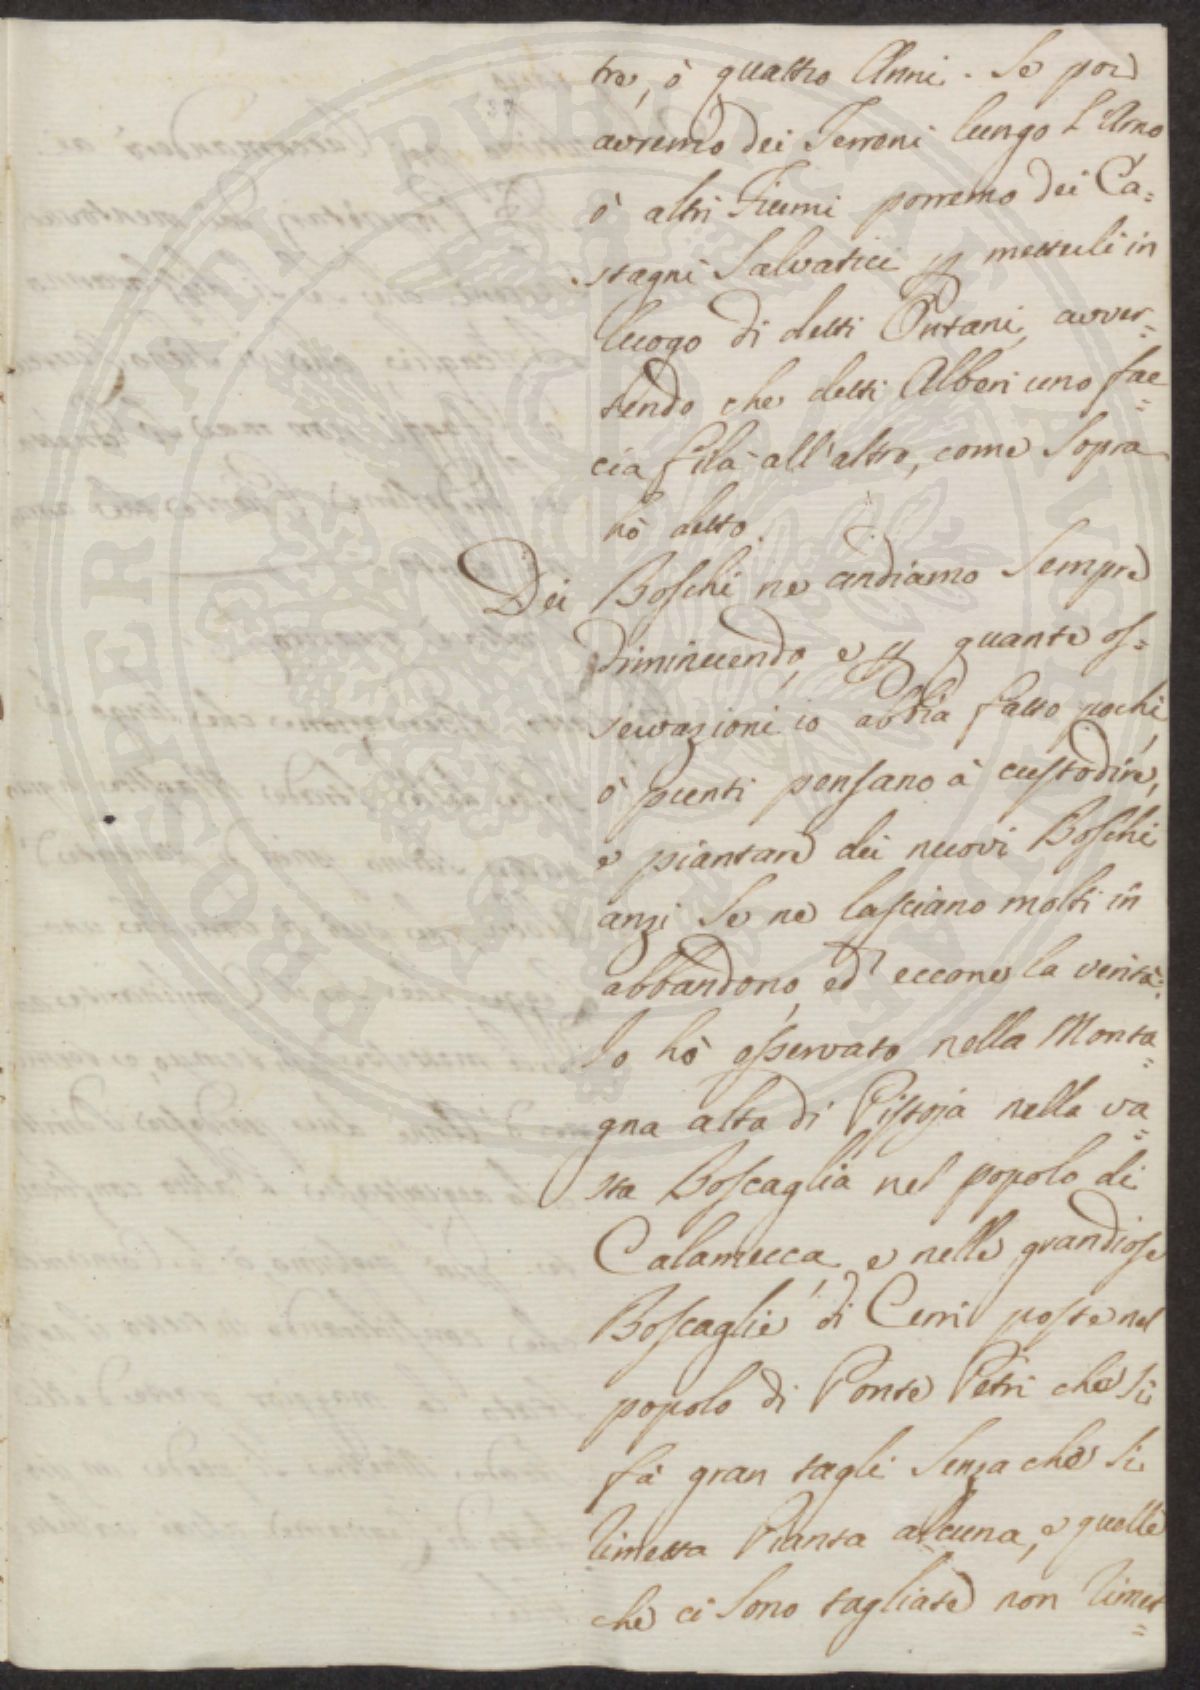 tre, ò quattro Anni. Se poi
avremo dei Terreni lungo l'Arno
ò altri Fiumi porremo dei Ca=
stagni Salvatici p metterli in
luogo di detti Ontani, avver=
tendo che detti Alberi uno fac=
cia fila all'altro, come sopra
hò detto.
Dei Boschi ne andiamo sempre
diminuendo, e p quante os=
servazioni io abbia fatto pochi,
ò punti pensano à custodire,
e piantare dei nuovi Boschi
anzi se ne lasciano molti in
abbandono, ed eccone la verità:
Io hò osservato nella Monta=
gna alta di Pistoja nella va=
sta Boscaglia nel popolo di
Calamecca, e nelle grandiose
Boscaglie di Cerri poste nel
popolo di Ponte Petri che si
fà gran tagli senza che si
rimetta Pianta alcuna, e quelle
che ci sono tagliate non rimet=
PROSPERITATI PVBLICAE AVGENDAE